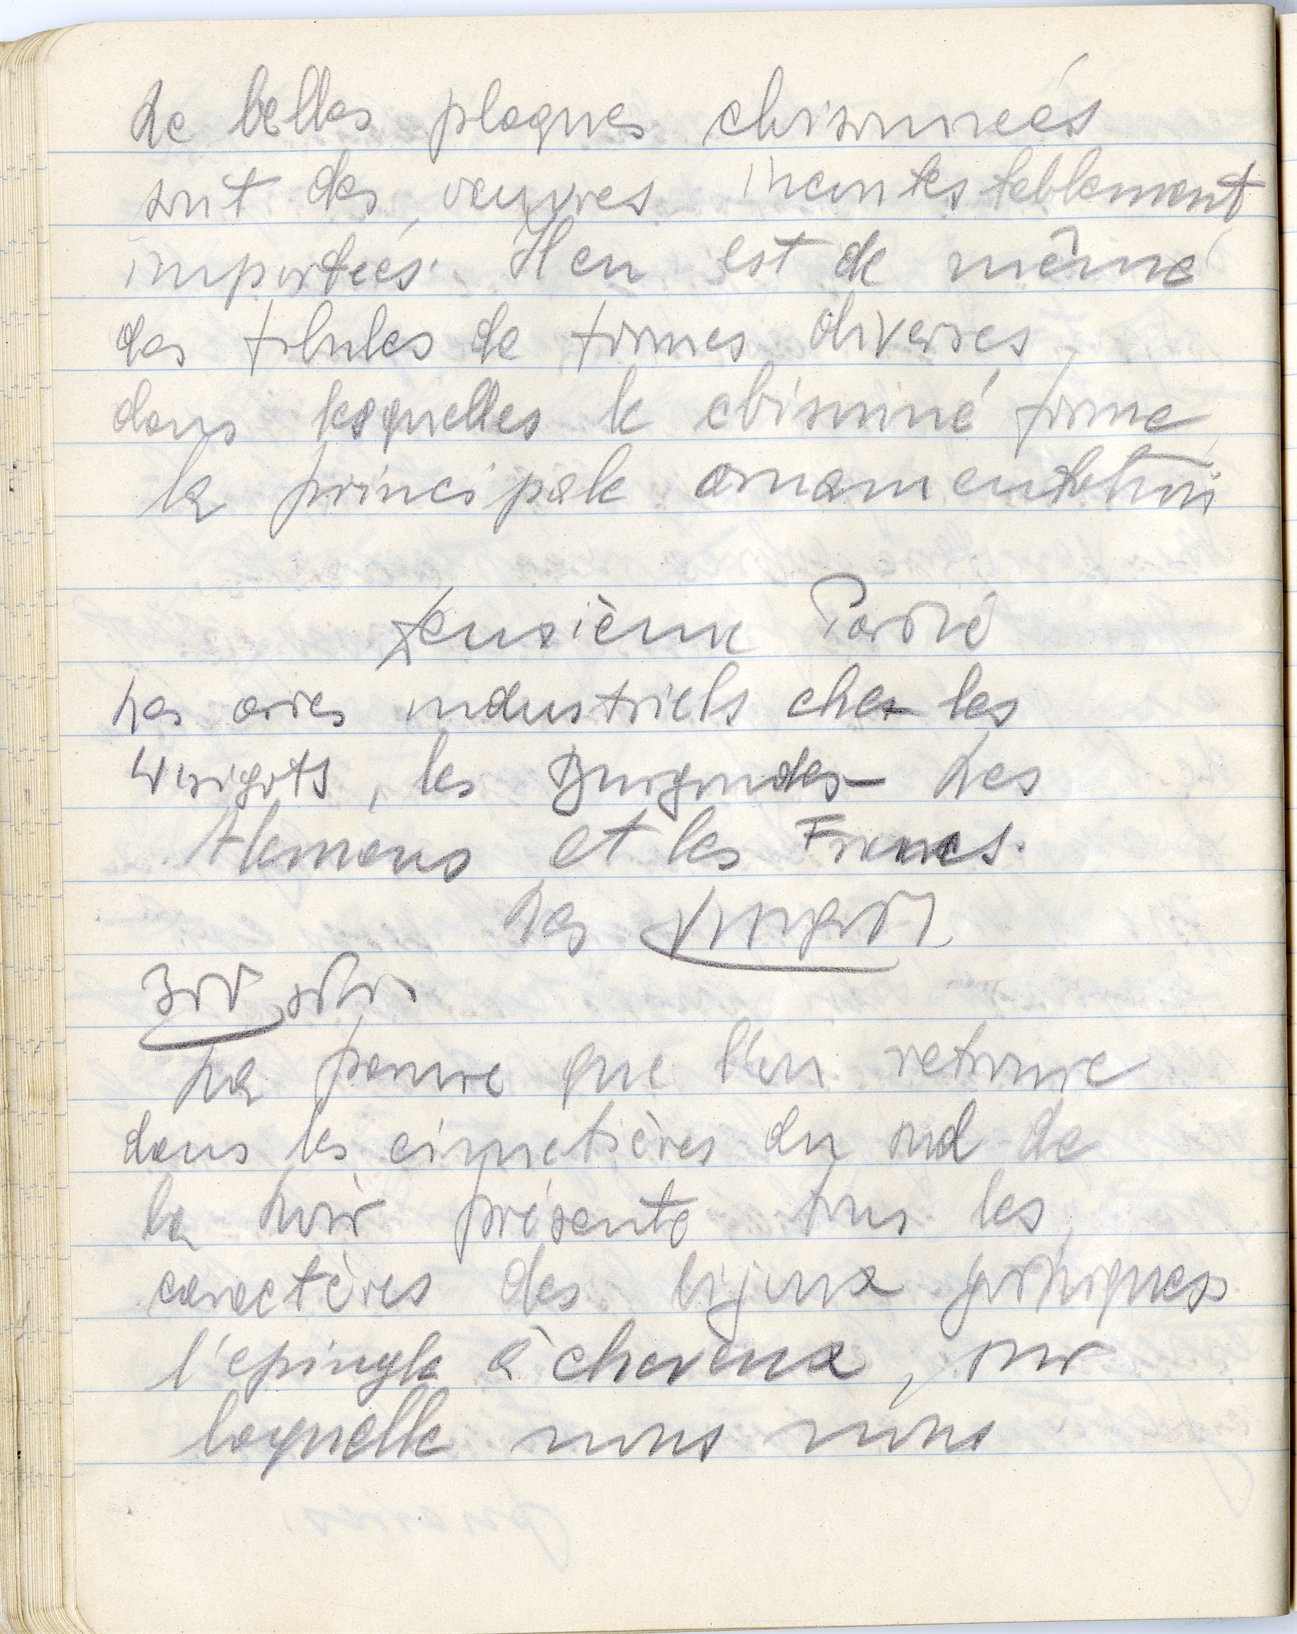 de belles plaques cloisonnées
sont des oeuvres incontestablement
importées. Il en est de même
des fibules de formes diverses
dans lesquelles le cloisonné forme
la principale ornamentation
Deusième Partie
Les arts industriels chez les
Wisigots, les Burgondes - Les
Alemans et les Francs.
Les Visigots
La parure que l'on retrouve
dans les cimetières du sud de
la Loire présente tous les
caractères des bijoux gothiques
l'épingle à cheveux, sur
laquelle nous nous